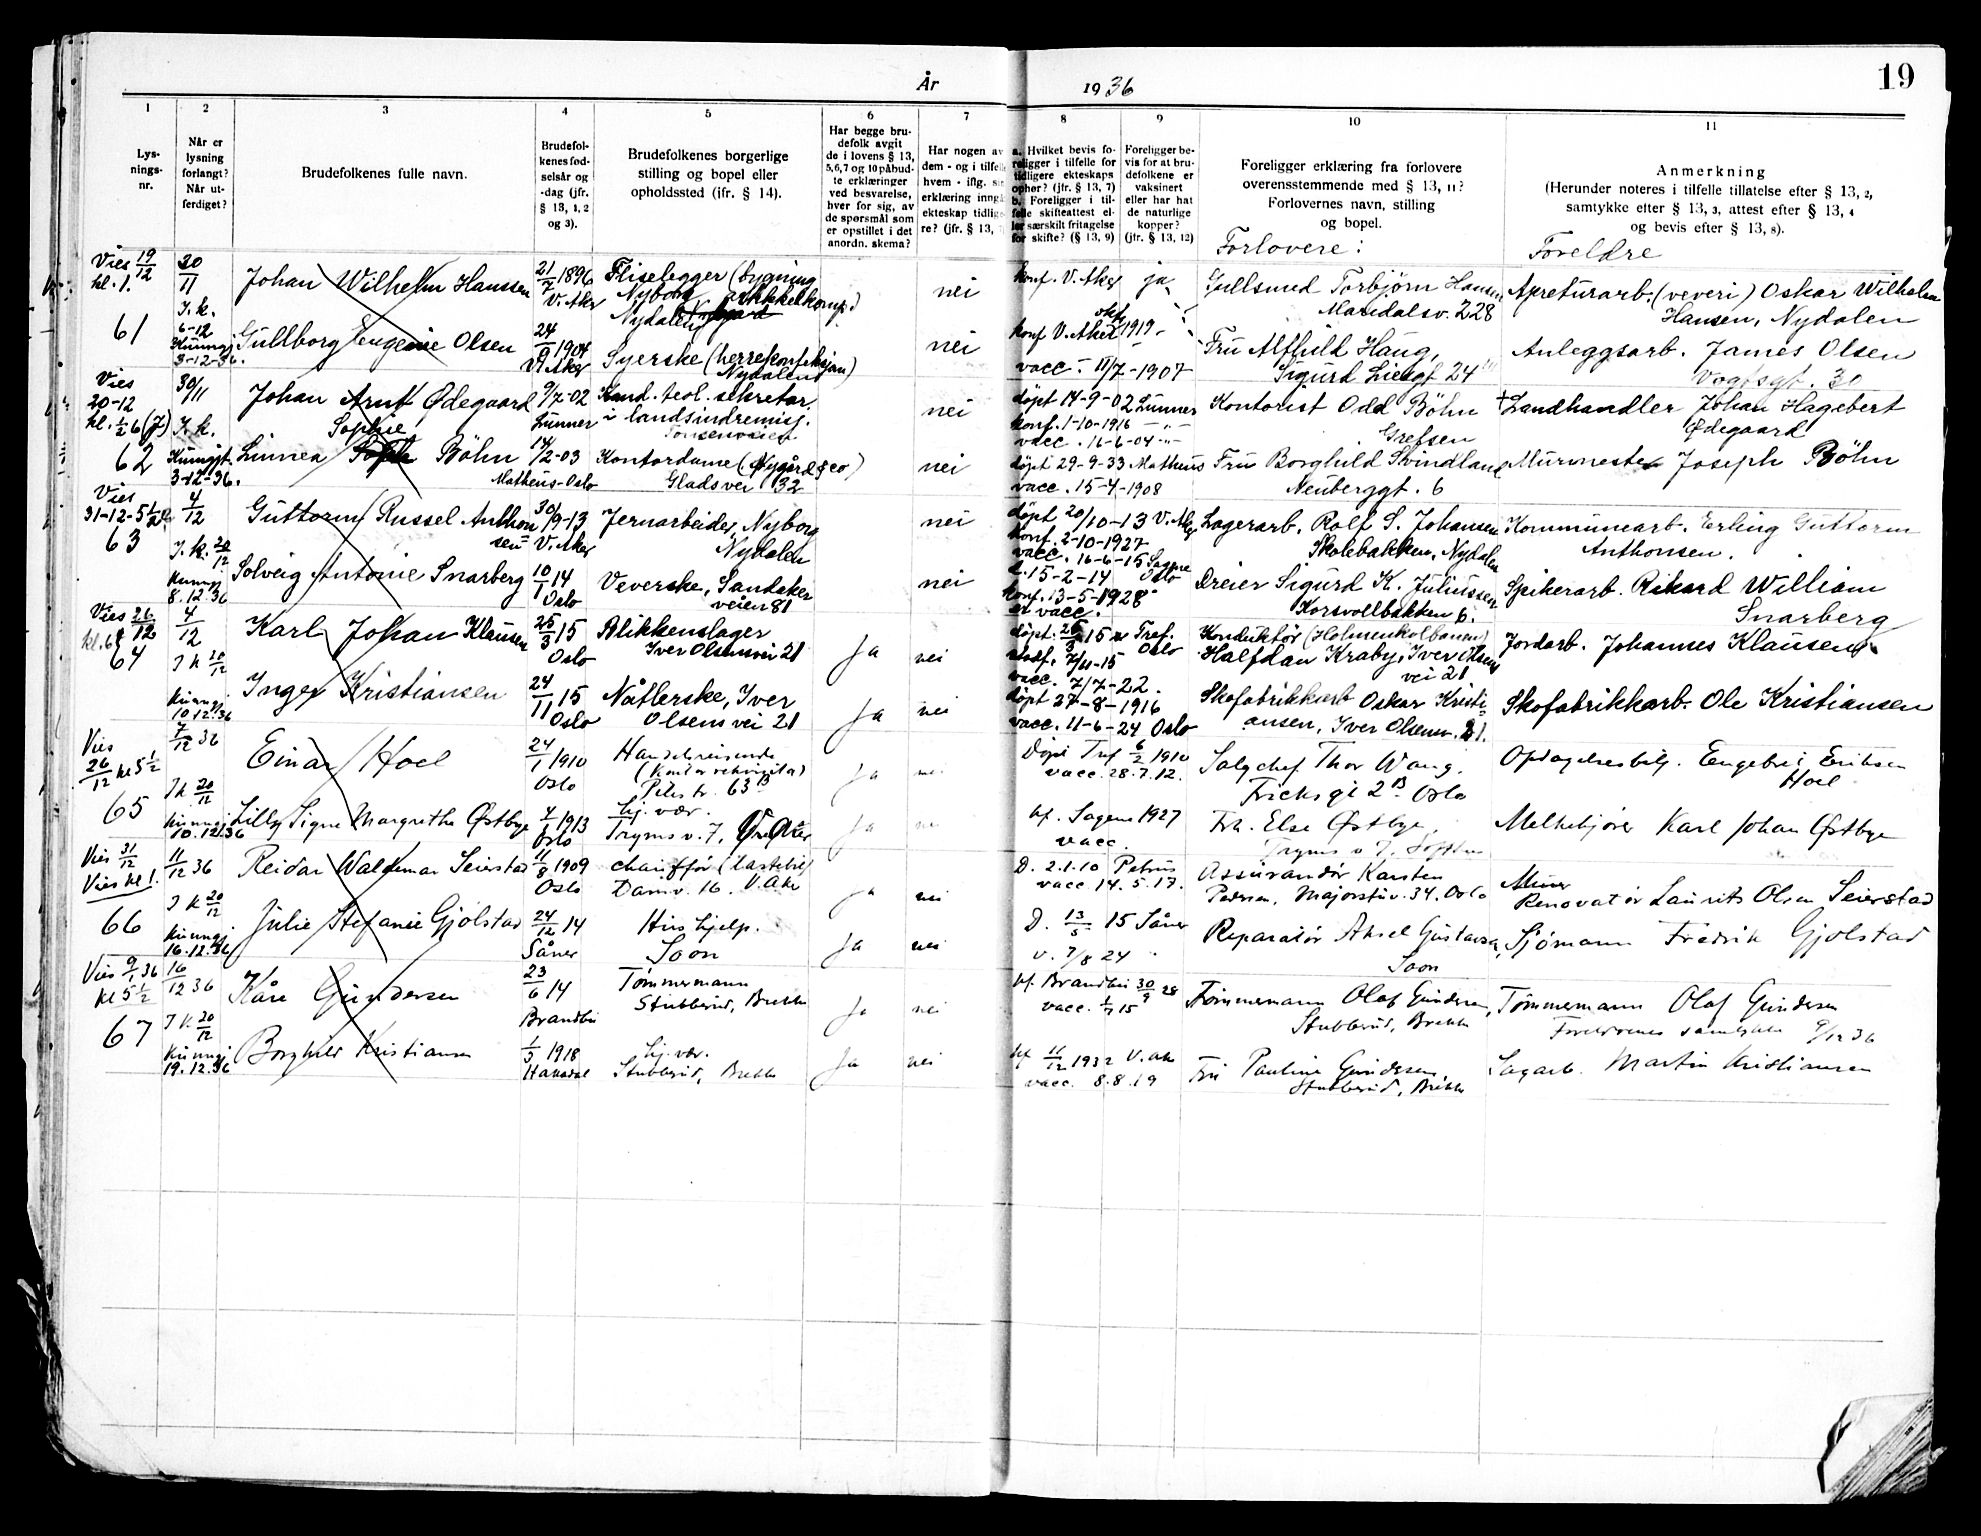 År 1936
19
1
2
3
4
5
6
7
8
9
10
11
Lys-
nings-
nr.
Når er
lysning
forlangt?
Når ut-
ferdiget?
Brudefolkenes fulle navn.
Brudefol-
kenes fød-
selsår og
-dag (jfr.
§ 13, 1, 2
og 3).
Brudefolkenes borgerlige
stilling og bopel eller
opholdssted (ifr. § 14).
Har begge bru-
defolk avgit
de i lovens § 13,
5,6,7 og 10 påbud-
te erklæringer
ved besvarelse,
hver for sig, av
de spørsmål som
er opstillet i det
anordn. skema?
Har nogen av
dem - og i tilfelle
hvem - iflg. sin
erklæring inngå
ekteskap tidlige-
re? (jfr. § 13,
a. Hvilket bevis fo-
religger i tilfelle for
tidligere ekteskaps
ophør? (jfr. § 13, 7)
b. Foreligger i til-
felle skifteattest el-
ler særskilt fritagelse
for skifte? (§ 13, 9)
Foreligger be-
vis for at bru-
defolkene er
vaksinert
eller har hat
de naturlige
kopper?
(jfr. § 13, 12)
Foreligger erklæring fra forlovere
overensstemmende med § 13, 11?
Forlovernes navn, stilling
og bopel.
Forlovere:
Anmerkning
(Herunder noteres i tilfelle tillatelse efter § 13, 2,
samtykke efter § 13, 3, attest efter § 13, 4
og bevis efter § 13, 8).
Foreldre
Vies 19/12
kl. 1.
61
30/11
J.k.
6-12
Kunngj.
3-12-36.
Johan Wilhelm Hanssen
21/7 1896
V. Aker
Fliselegger (bygning
Nyborg
Nydalen
nei
konf. V. Aker ja
Gullsmed Torbjørn Hansen
Maridalsv. 228
Apreturarb. (veveri) Oskar Wilhelm
Hansen, Nydalen
Gullborg Eugenie Olsen
24/9 1904
V. Aker
Syerske (herrekonfeksjon)
Nydalen
nei
konf V. Aker 1919
vacc. 11/7-1907
Fru Alfhild Haug,
Sigurd Liesgt 24
Anleggsarb. James Olsen
Vogtsgt. 30
Vies
20-12
kl. 1/2 6 (J)
62
30/11
J.k.
Kunngjt.
3-12-36.
Johan Arnt Ødegaard
9/7-02
Lunner
Kand. teol. sekretær
i landsindremisj.
nei
døpt 14-9-02 Lunner
konf. 1-10-1916
vacc. 16-6-04
Kontorist Odd Bøhn
Grefsen
+ Landhandler Johan Hagebert
Ødegaard
Sophie
Linnea Bøhn
14/2-03
Matheus-Oslo
Kontordame (Nygård & co)
Gladsvei 32
nei
døpt 29-9-33 Matheus
vacc. 15-4-1908
Fru Borghild Svindland
Neuberggt. 6
Murmester Joseph Bøhn
Vies
31-12-5 1/2
63
4/12
J.k. 20/12
Kunngj
8.12.36
Guttorm Russel Anthon
sen
30/9-13
V. Aker
Jernarbeider, Nyborg
Nydalen
nei
døpt 20/10-13 V. Aker
konf. 2-10-1927
vacc. 16-6-15
Lagerarb. Rolf S. Johansen
Skolebakken, Nydalen
Kommunearb. Erling Guttorm
Anthonsen.
Solveig Antonie Snarberg
10/1 14
Oslo
Veverske, Sandaker
veien 81
nei
d. 15-2-14 Sagene Oslo
konf. 13-5-1928
er vacc.
Dreier Sigurd K. Juliussen
Korsvollbakken 6.
Spikerarb. Rikard William
Snarberg
Vies 26/12
64
4/12
J k 20/12
Kunngj
10.12.36
Karl Johan Klausen
25/3 15
Oslo
Blikkenslager
Iver Olsensvei 21
Ja
nei
Konduktør (Holmenkolbanen)
Halfdan Kraby, Iver Olsens
vei 21
Jordarb. Johannes Klausen
vacc. 7/7-22.
Inger Kristiansen
24/11 15
Oslo
Nåtlerske, Iver
Olsens vei 21
Ja
nei
døpt 27-8-1916
vacc. 11-6-24 Oslo
Skofabrikkarb Oskar Kristi-
ansen, Iver Olsensv. 21.
Skofabrikkarb. Ole Kristiansen
Vies
26/12 kl 5 1/2
65
7/12 36
J k 20/12
Kunngj
10.12.36
Einar Hoel
24/1 1910
Oslo
Handelsreisende
(Kontorrekvisita)
Pilestr. 63 B
Ja
nei
Døpt Tref 6/2 1910
vacc. 28.7.12.
Salgchef Thor Wang.
Fricksgt 2 B Oslo
Opdagelsesbtj. Engebret Eriksen
Hoel
Lilly Signe Margrethe Østbye
4/1 1913
Oslo
Hj. vær.
Tryms v. 7, V. Aker
Ja
nei
kf. Sagene 1927
vacc.
Frk. Else Østbye,
Tryms v 7.
Melkekjører Karl Johan Østbye
Vies 31/12
Vies kl 1.
66
11/12 36
J k 20/12
Kunngj
16.12.36
Reidar Waldemar Seierstad
11/8 1909
Oslo
chauffør (lastebil)
Damv. 16. V. Aker
Ja
nei
D. 2.1.10 Petrus
vacc 14.5.17.
Assurandør Karsten
Pedersen, Majorstuv. 34. Oslo
Renovatør Laurits Olsen Seierstad
Julie Stefanie Gjølstad
24/12 14
Såner
Hus hjelp.
Soon
Ja
nei
D. 13/5 15 Såner
v. 7/8 24
Reparatør Aksel Gustavsen,
Soon
Sjømann Fredrik Gjølstad
Vies 9/1 36
kl 5 1/2
67
16/12 36
J k 20/12
Kunngj
19.12.36
Kåre Gundersen
23/6 14
Brandbu
Tømmermann
Stubberud, Brekke
Ja
nei
kf. Brandbu 30/9 28
vacc. 1/7 15
Tømmermann Olaf Gundersen,
Stubberud, Brekke
Tømmermann Olaf Gundersen
Foreldrenes samtykke 9/12 36
Borghild Kristiansen
1/5 1918
Hakadal
hj. vær.
Stubberud, Brekke
Ja
nei
kf 11/12 1932 V. Aker
vacc. 8.8.19
Fru Pauline Gundersen,
Stubberud, Brekke
Sagarb. Martin Kristiansen